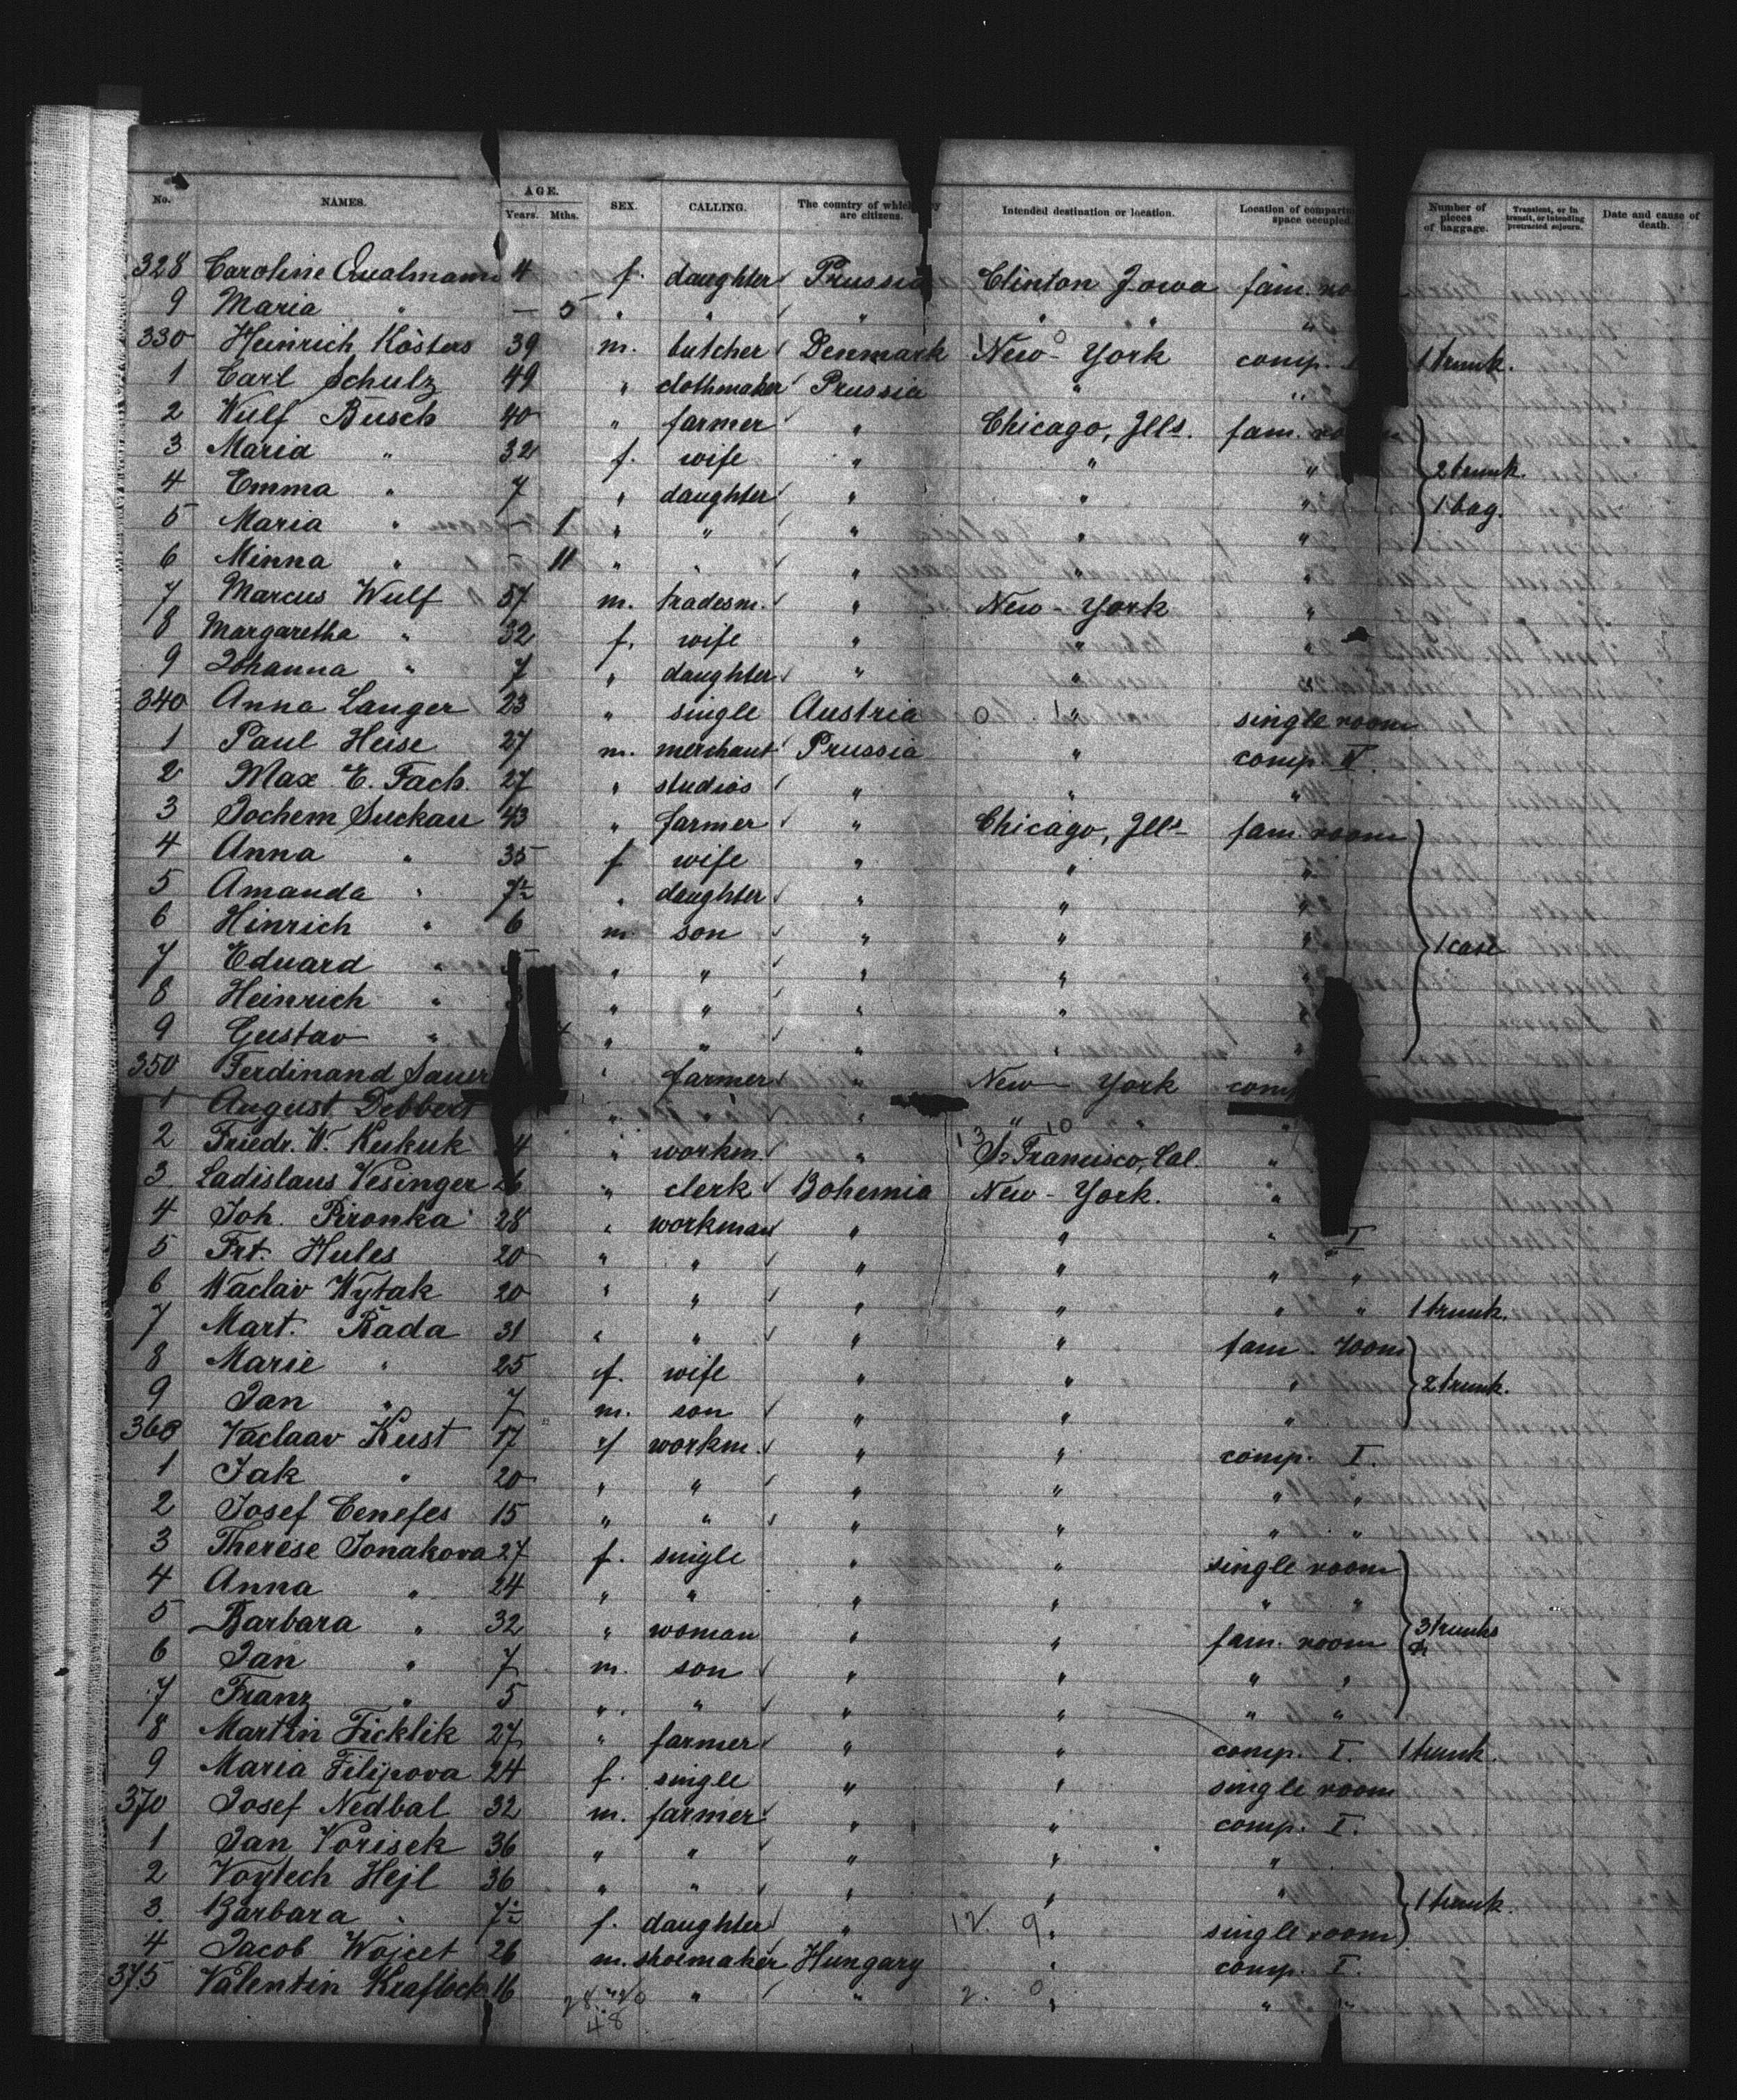 No. NAMES. AGE. Years. Mths. SEX. CALLING. The country of which are citizens. Intended destination or location. Location of space occupied. Number of pieces of baggage. Transient, or in transit, or intending protracted sojourn. Date and cause of death.
328 Caroline Qualmann 4 f. daughter Prussia Clinton Jowa fam.
9 Maria " — 5 " " " " " "
330 Heinrich Kösters 39 m. butcher Denmark New-York comp. 1 trunk.
1 Carl Schulz 49 " clothmaker Prussia " "
2 Wulf Busch 40 " farmer " Chicago, Ills. fam.
3 Maria " 32 f. wife " " " 2 trunk.
4 Emma " 7 " daughter " " " 1 bag.
5 Maria " — 1 " " " " "
6 Minna " — 11 " " " " "
7 Marcus Wulf 57 m. tradesm. " New-York "
8 Margaretha " 32 f. wife " " "
9 Johanna " 7 " daughter " " "
340 Anna Langer 23 " single Austria 0 1 " single room
1 Paul Heise 27 m. merchant Prussia " comp. II.
2 Max E. Fach. 27 " studios " " "
3 Jochem Suckau 43 " farmer " Chicago, Ills fam. room
4 Anna " 35 f wife " " "
5 Amanda " 7½ " daughter " " "
6 Hinrich " 6 m. son " " " 1 case
7 Eduard " " " " "
8 Heinrich " " " " "
9 Gustav " " " " " "
350 Ferdinand Sauer " farmer " New-York com
1 August Debbert " " " " "
2 Friedr. W. Kukuk 4 " workm. " 13 10 S. Francisco, Cal. "
3 Ladislaus Vesinger 26 " clerk Bohemia New-York. "
4 Joh. Pironka 28 " workman " " " I
5 Frt. Hules 20 " " " " " "
6 Waclav Wytak 20 " " " " " " 1 trunk.
7 Mart. Rada 31 " " " " fam. room
8 Marie " 25 f. wife " " " 2 trunk.
9 Jan " 7 m. son " " "
360 Vaclaav Kust 17 " workm. " " comp. I.
1 Jak " 20 " " " " " "
2 Josef Cenefes 15 " " " " " "
3 Therese Jonakova 27 f. single " " single room
4 Anna " 24 " " " " " "
5 Barbara " 32 " woman " " fam. room 3 trunks
6 Jan " 7 m. son " " " "
7 Franz " 5 " " " " " "
8 Martin Ficklik 27 " farmer " " comp. I. 1 trunk.
9 Maria Filipova 24 f. single " " single room
370 Josef Nedbal 32 m. farmer " " comp. I.
1 Jan Vorisek 36 " " " " "
2 Voytech Hejl 36 " " " " " 1 trunk.
3. Barbara " 7½ f. daughter " 12. 9 " single room
4 Jacob Wojcet 26 m. shoemaker Hungary " comp. I.
375 Valentin Kraflock 16 " " 2. 0 " " "
48